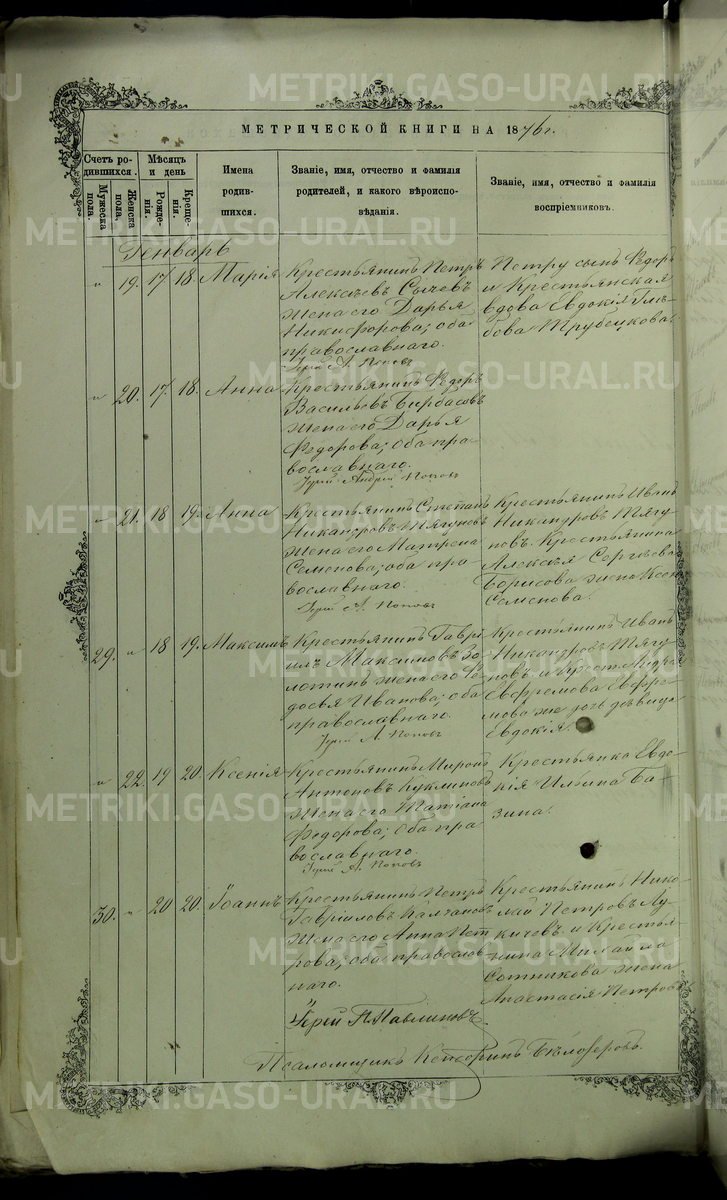 МЕТРИЧЕСКОЙ КНИГИ НА 1876 г.
Счетъ ро-
дившихся.
Мужеска
пола.
Женска
пола.
Мѣсяцъ
и день
Рожде-
нія.
Креще-
нія.
Имена
родив-
шихся.
Званіе, имя, отчество и фамилія
родителей, и какого вѣроиспо-
вѣданія.
Званіе, имя, отчество и фамилія
воспріемниковъ.
Генварь
"
19.
17
18.
Марія
Крестьянинъ Петръ
Алексѣевъ Сычевъ
жена его Дарья
Никифорова; оба
православнаго.
Іерей А. Поповъ
Петру сынъ Ѳедоръ
и Крестьянская
вдова Евдокія Глѣ-
бова Трубецкова.
"
20.
17.
18.
Анна
Крестьянинъ Ѳедоръ
Васильевъ
жена его Дарья
Ѳедорова; оба пра-
вославнаго.
Іерей Андрей Поповъ
"
21.
18
19.
Анна
Крестьянинъ Степанъ
Никандровъ Тягуновъ
жена его Матрена
Семенова; оба пра-
вославнаго.
Іерей А. Поповъ
Крестьянинъ Иванъ
Никандровъ Тягу-
новъ. Крестьянина
Алексѣя Сергѣева
Борисова жена Ксенія
Семенова.
29.
"
18
19.
Максимъ
Крестьянинъ Гаврі-
илъ Максимовъ Зо-
лотинъ жена его Ѳе-
досья Иванова; оба
православнаго.
Іерей А. Поповъ
Крестьянинъ Иванъ
Никандровъ Тягу-
новъ. и Крест. Андрея
Ефремова Ефре-
мова же дочь дѣвица
Евдокія.
"
22.
19
20.
Ксенія
Крестьянинъ Миронъ
Антоновъ Куклиновъ
жена его Татіана
Федорова; оба пра-
вославнаго.
Іерей А. Поповъ
Крестьянка Евдо-
кія Ильина Ба-
зина.
30.
"
20
20.
Іоаннъ
Крестьянинъ Петръ
Гавріиловъ Колчановъ
жена его Анна Пет-
рова; оба православ-
наго.
Іерей П. Павлиновъ.
Крестьянинъ Нико-
лай Петровъ Лу-
кичевъ. и Крестья-
нина
Сотникова жена
Анастасія Петрова
Псаломщикъ Бѣлозеровъ.
METRIKI.GASO-URAL.RU